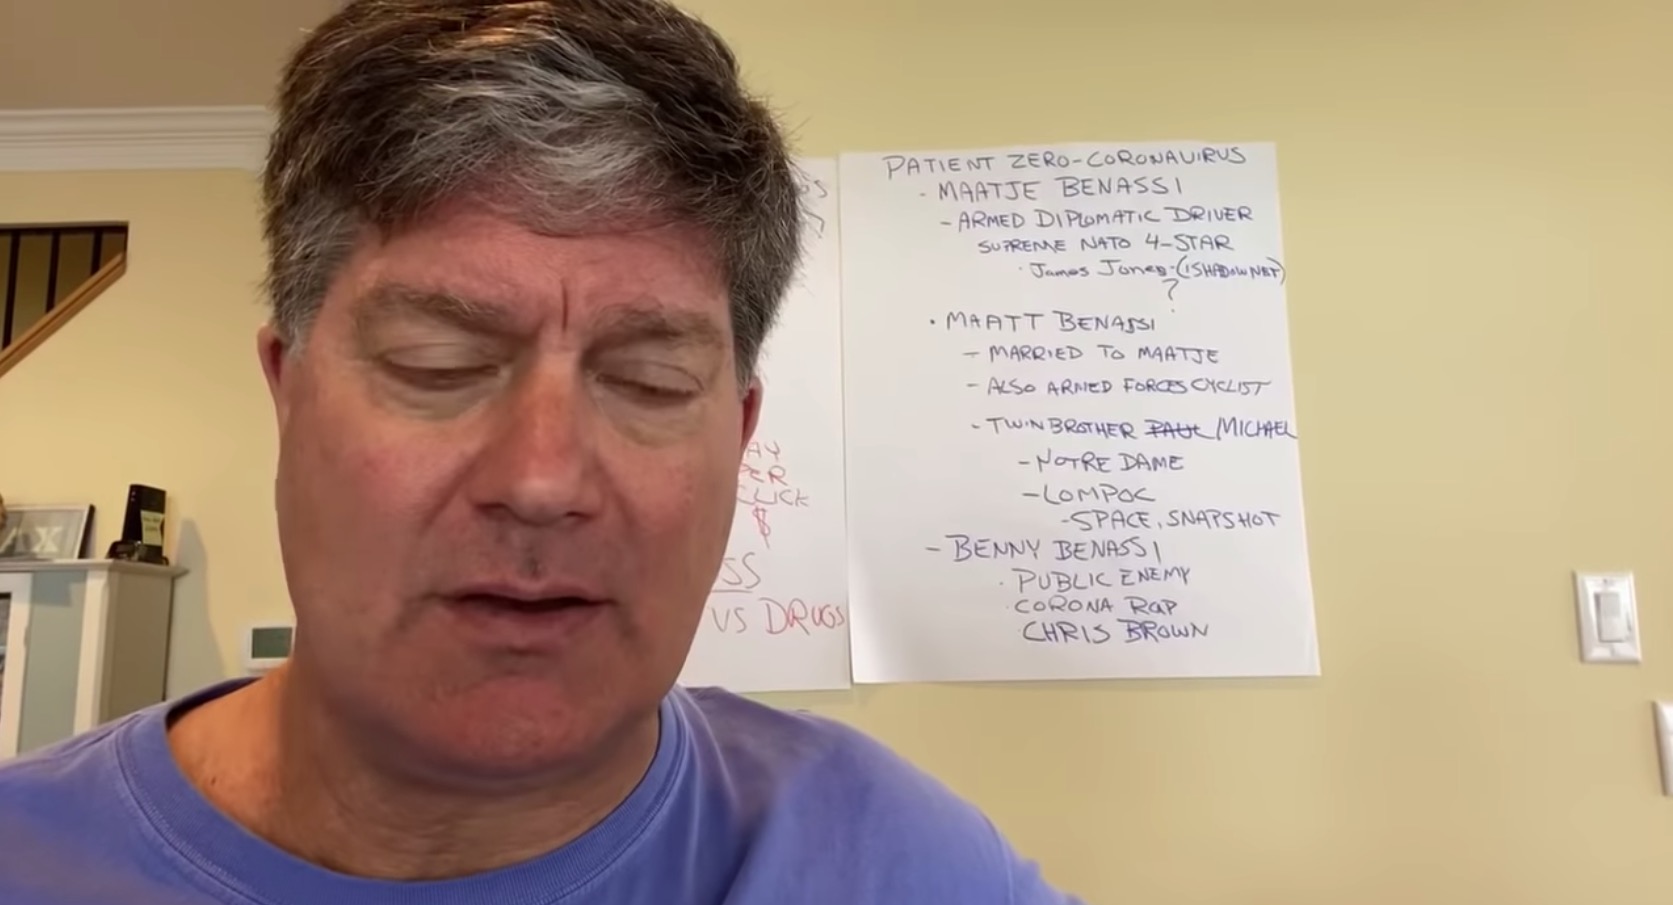 PATIENT ZERO-CORONAVIRUS
- MAATJE BENASSI
- ARMED DIPLOMATIC DRIVER
SUPREME NATO 4-STAR
· James Jones-(ISHADOWNET)
?
· MAATT BENASSI
- MARRIED TO MAATJE
- ALSO ARMED FORCES CYCLIST
- TWIN BROTHER PAUL/MICHAEL
- NOTRE DAME
- LOMPOC
- SPACE, SNAPSHOT
- BENNY BENASSI
· PUBLIC ENEMY
· CORONA RAP
· CHRIS BROWN
AY
PER
CLICK
$
SS
VS DRUGS